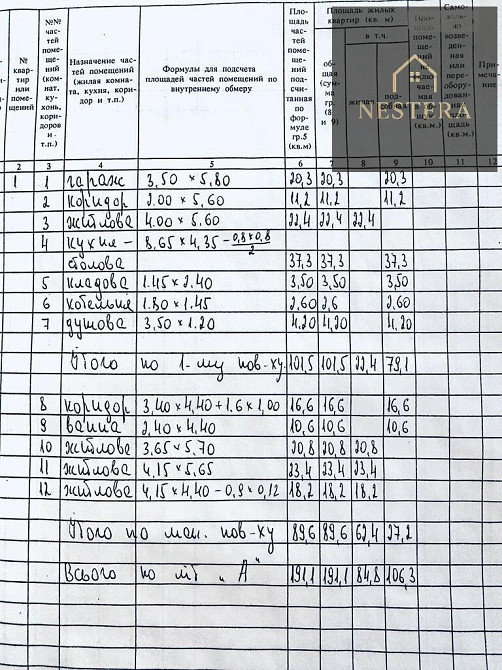 № квар- тир или поме- щений
№№ час- тей поме- щений (ком- нат, ку- хонь, кори- доров и т.п.)
Назначение час- тей помещений (жилая комна- та, кухня, кори- дор и т.п.)
Формулы для подсчета площадей частей помещений по внутреннему обмеру
Пло- щадь час- тей поме- щений под- счи- танная по фор- муле гр.5 (кв.м)
Площадь жилых квартир (кв. м)
в т.ч.
об- щая (сум- ма гр. (8 и 9)
жилая
под- собная
(кв.м.)
Само- воль- но возве- ден- ная или пере- обору- дован- пло- щадь (кв.м.)
При- меча- ние
NESTERA
2 3 4 5 6 7 8 9 10 11 12
1 1 гараж 3,50 × 5,80 20,3 20,3 20,3
2 коридор 2.00 × 5,60 11,2 11,2 11,2
3 житлова 4.00 × 5.60 22,4 22,4 22,4
4 кухня - 8,65 × 4,35 - 0,8×0,8/2
столова 37,3 37,3 37,3
5 кладова 1.45 × 2.40 3,50 3,50 3,50
6 котельня 1.80 × 1.45 2,60 2,6 2,60
7 душова 3,50 × 1.20 4.20 4,20 4,20
Итого по 1-му пов-ху 101,5 101,5 22,4 79,1
8 коридор 3,40 × 4,40 + 1.6 × 1,00 16,6 16,6 16,6
9 ванна 2,40 × 4,40 10,6 10,6 10,6
10 житлова 3,65 × 5,70 20,8 20,8 20,8
11 житлова 4,15 × 5,65 23,4 23,4 23,4
12 житлова 4,15 × 4,40 - 0,9 × 0,12 18,2 18,2 18,2
Итого по ман. пов-ху 89,6 89,6 62,4 27,2
Всього по літ „А" 191,1 191,1 84,8 106,3